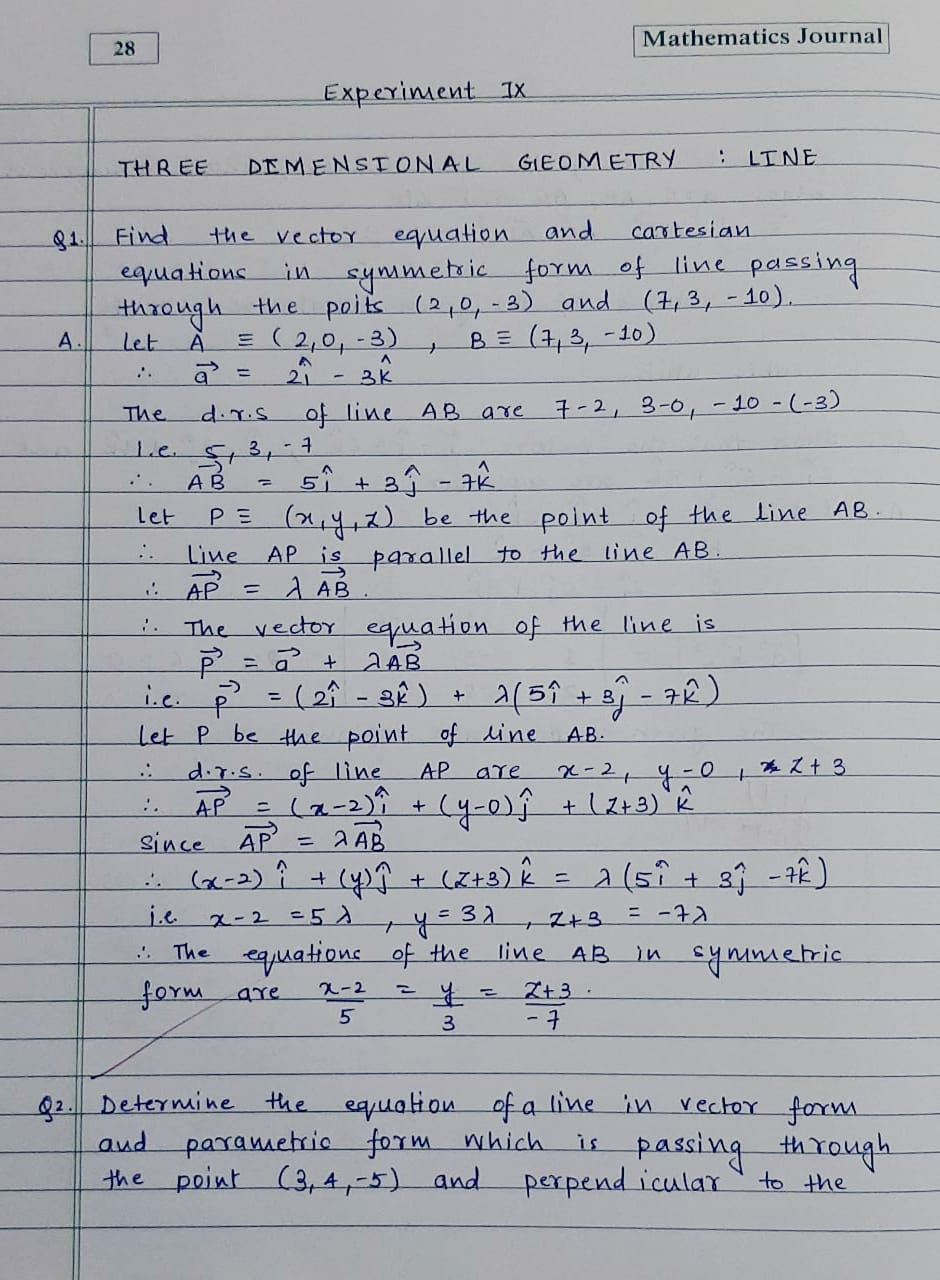 28
Mathematics Journal
Experiment IX
THREE DIMENSIONAL GEOMETRY : LINE
Q1. Find the vector equation and cartesian
equations in symmetric form of line passing
through the poits (2,0,-3) and (7,3,-10).
A. Let A ≡ (2,0,-3) , B ≡ (7,3,-10)
∴ a⃗ = 2î - 3k̂
The d.r.s of line AB are 7-2, 3-0, -10-(-3)
i.e. 5, 3, -7
∴ AB⃗ = 5î + 3ĵ - 7k̂
Let P ≡ (x,y,z) be the point of the line AB.
∴ Line AP is parallel to the line AB.
∴ AP⃗ = λ AB⃗.
∴ The vector equation of the line is
p⃗ = a⃗ + λAB⃗
i.e. p⃗ = (2î - 3k̂) + λ(5î + 3ĵ - 7k̂)
Let P be the point of line AB.
∴ d.r.s. of line AP are x-2, y-0, z+3
∴ AP⃗ = (x-2)î + (y-0)ĵ + (z+3)k̂
since AP⃗ = λAB⃗
∴ (x-2)î + (y)ĵ + (z+3)k̂ = λ(5î + 3ĵ - 7k̂)
i.e x-2 = 5λ , y = 3λ , z+3 = -7λ
∴ The equations of the line AB in symmetric
form are x-2/5 = y/3 = z+3/-7.
Q2. Determine the equation of a line in vector form
and parametric form which is passing through
the point (3,4,-5) and perpendicular to the